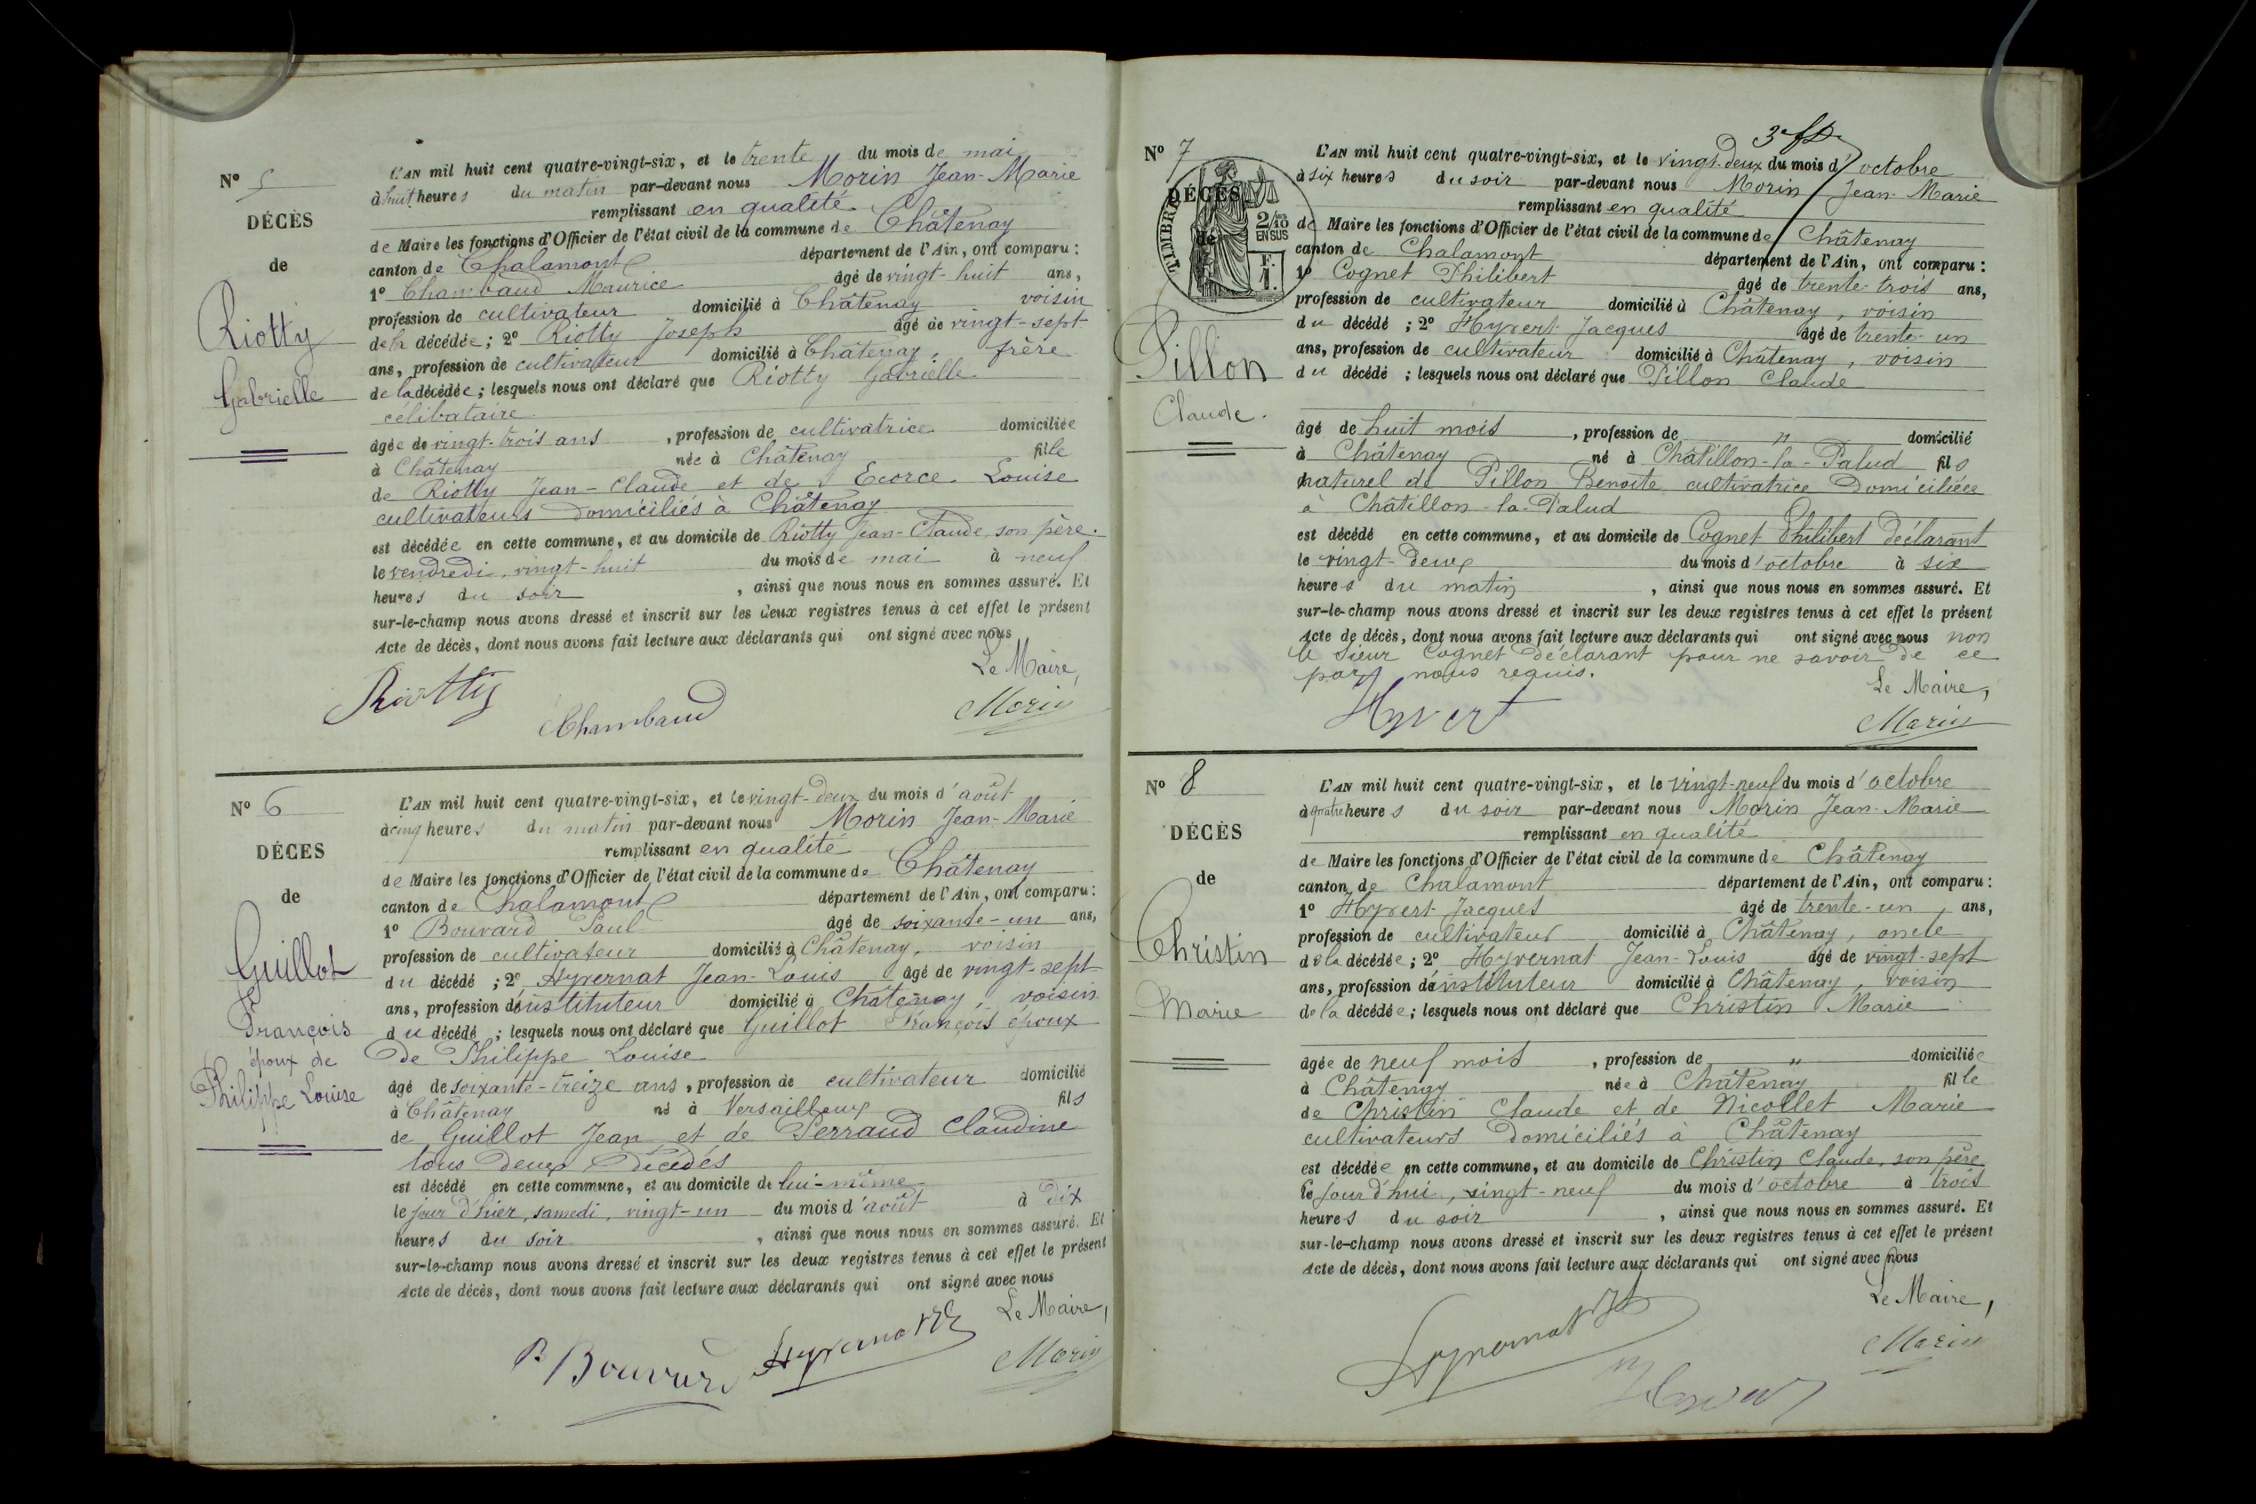 N° 5
DÉCÈS
de
Riotty
Gabrielle
L'AN mil huit cent quatre-vingt-six, et le trente du mois de mai
à huit heures du matin par-devant nous Morin Jean-Marie
remplissant en qualité
de Maire les fonctions d'Officier de l'état civil de la commune de Châtenay
canton de Chalamont département de l'Ain, ont comparu :
1° Chambaud Maurice âgé de vingt-huit ans,
profession de cultivateur domicilié à Châtenay voisin
de la décédée ; 2° Riotty Joseph âgé de vingt-sept
ans, profession de cultivateur domicilié à Châtenay, frère
de la décédée ; lesquels nous ont déclaré que Riotty Gabrielle
célibataire
âgée de vingt-trois ans, profession de cultivatrice domiciliée
à Châtenay née à Châtenay fille
de Riotty Jean-Claude et de Ecorce Louise
cultivateurs domiciliés à Châtenay
est décédée en cette commune, et au domicile de Riotty Jean-Claude, son père.
le vendredi, vingt-huit du mois de mai à neuf
heures du soir, ainsi que nous nous en sommes assuré. Et
sur-le-champ nous avons dressé et inscrit sur les deux registres tenus à cet effet le présent
Acte de décès, dont nous avons fait lecture aux déclarants qui ont signé avec nous
Le Maire,
Riotty Chambaud Morin
N° 6
DÉCES
de
Guillot
François
époux de
Philippe Louise
L'AN mil huit cent quatre-vingt-six, et le vingt-deux du mois d'août
à cinq heures du matin par-devant nous Morin Jean-Marie
remplissant en qualité
de Maire les fonctions d'Officier de l'état civil de la commune de Châtenay
canton de Chalamont département de l'Ain, ont comparu :
1° Bouvard Paul âgé de soixante-un ans,
profession de cultivateur domicilié à Châtenay, voisin
du décédé ; 2° Hyvernat Jean-Louis âgé de vingt-sept
ans, profession d'instituteur domicilié à Châtenay, voisin
du décédé ; lesquels nous ont déclaré que Guillot François époux
de Philippe Louise
âgé de soixante-treize ans, profession de cultivateur domicilié
à Châtenay né à Versailleux fils
de Guillot Jean et de Perraud Claudine
tous deux décédés
est décédé en cette commune, et au domicile de lui-même
le jour d'hier, samedi, vingt-un du mois d'août à dix
heures du soir, ainsi que nous nous en sommes assuré. Et
sur-le-champ nous avons dressé et inscrit sur les deux registres tenus à cet effet le présent
Acte de décès, dont nous avons fait lecture aux déclarants qui ont signé avec nous
Le Maire,
P. Bouvard Hyvernat Morin
3e
N° 7
DÉCÈS
de
TIMBRE
2/10 EN SUS
F. 1.
Pillon
Claude.
L'AN mil huit cent quatre-vingt-six, et le vingt-deux du mois d'octobre
à six heures du soir par-devant nous Morin Jean-Marie
remplissant en qualité
de Maire les fonctions d'Officier de l'état civil de la commune de Châtenay
canton de Chalamont département de l'Ain, ont comparu :
1° Cognet Philibert âgé de trente-trois ans,
profession de cultivateur domicilié à Châtenay, voisin
du décédé ; 2° Hyvert Jacques âgé de trente-un
ans, profession de cultivateur domicilié à Châtenay, voisin
du décédé ; lesquels nous ont déclaré que Pillon Claude
âgé de huit mois, profession de " domicilié
à Châtenay né à Châtillon-la-Palud fils
naturel de Pillon Benoîte cultivatrice domiciliée
à Châtillon-la-Palud
est décédé en cette commune, et au domicile de Cognet Philibert déclarant
le vingt-deux du mois d'octobre à six
heures du matin, ainsi que nous nous en sommes assuré. Et
sur-le-champ nous avons dressé et inscrit sur les deux registres tenus à cet effet le présent
Acte de décès, dont nous avons fait lecture aux déclarants qui ont signé avec nous non
le sieur Cognet déclarant pour ne savoir de ce
par nous requis.
Le Maire,
Hyvert Morin
N° 8
DÉCÈS
de
Christin
Marie
L'AN mil huit cent quatre-vingt-six, et le vingt-neuf du mois d'octobre
à quatre heures du soir par-devant nous Morin Jean-Marie
remplissant en qualité
de Maire les fonctions d'Officier de l'état civil de la commune de Châtenay
canton de Chalamont département de l'Ain, ont comparu :
1° Hyvert Jacques âgé de trente-un, ans,
profession de cultivateur domicilié à Châtenay, oncle
de la décédée ; 2° Hyvernat Jean-Louis âgé de vingt-sept
ans, profession d'instituteur domicilié à Châtenay, voisin
de la décédée ; lesquels nous ont déclaré que Christin Marie
âgée de neuf mois, profession de " domiciliée
à Châtenay née à Châtenay fille
de Christin Claude et de Nicollet Marie
cultivateurs domiciliés à Châtenay
est décédée en cette commune, et au domicile de Christin Claude, son père
le jour d'hui, vingt-neuf du mois d'octobre à trois
heures du soir, ainsi que nous nous en sommes assuré. Et
sur-le-champ nous avons dressé et inscrit sur les deux registres tenus à cet effet le présent
Acte de décès, dont nous avons fait lecture aux déclarants qui ont signé avec nous
Le Maire,
Hyvernat Hyvert Morin